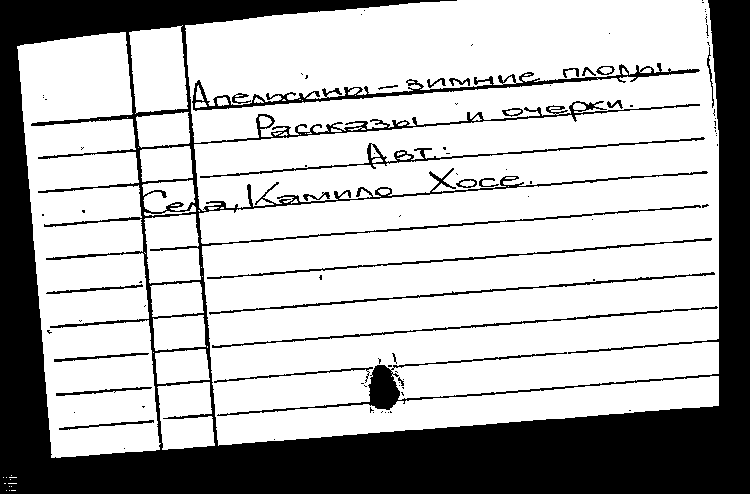 Апельсины – зимние плоды.
Рассказы и очерки.
Авт.:
Села, Камило Хосе.